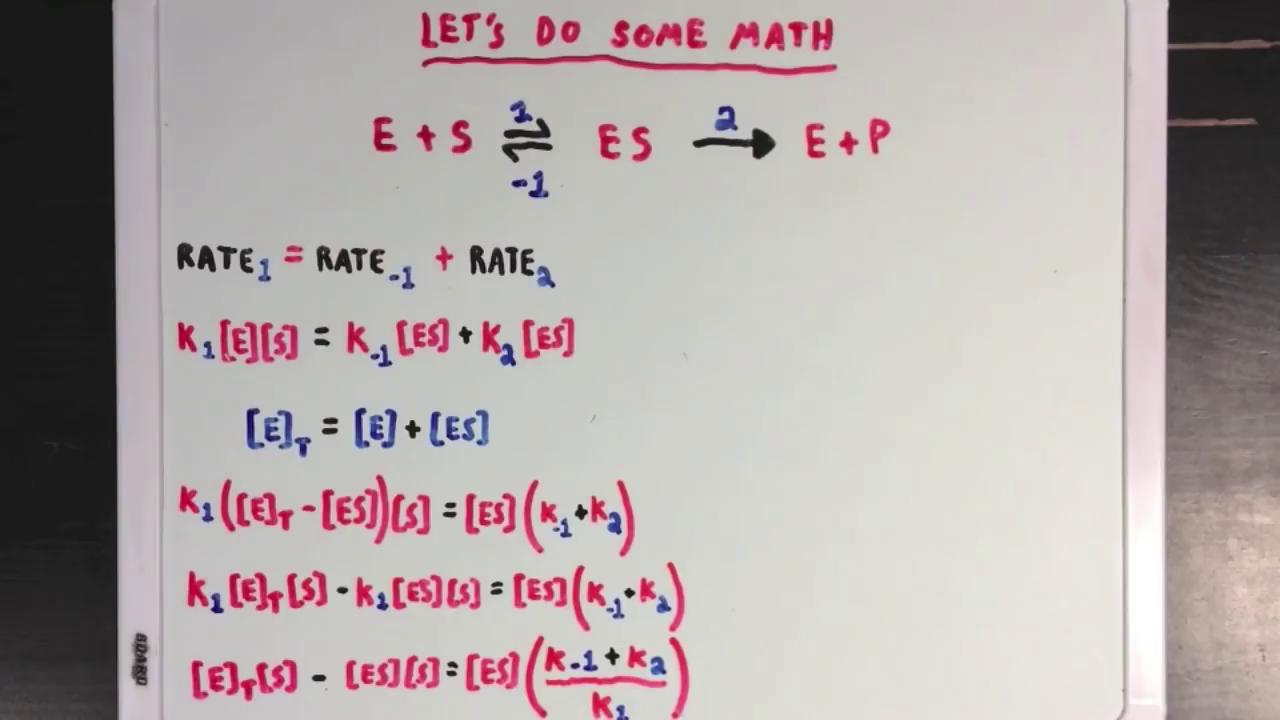 LET'S DO SOME MATH
1 2
E + S ⇌ ES → E + P
-1
RATE₁ = RATE₋₁ + RATE₂
K₁[E][S] = K₋₁[ES] + K₂[ES]
[E]_T = [E] + [ES]
K₁([E]_T - [ES])[S] = [ES](K₋₁ + K₂)
K₁[E]_T[S] - K₁[ES][S] = [ES](K₋₁ + K₂)
[E]_T[S] - [ES][S] = [ES]((K₋₁ + K₂)/K₁)
BOARD